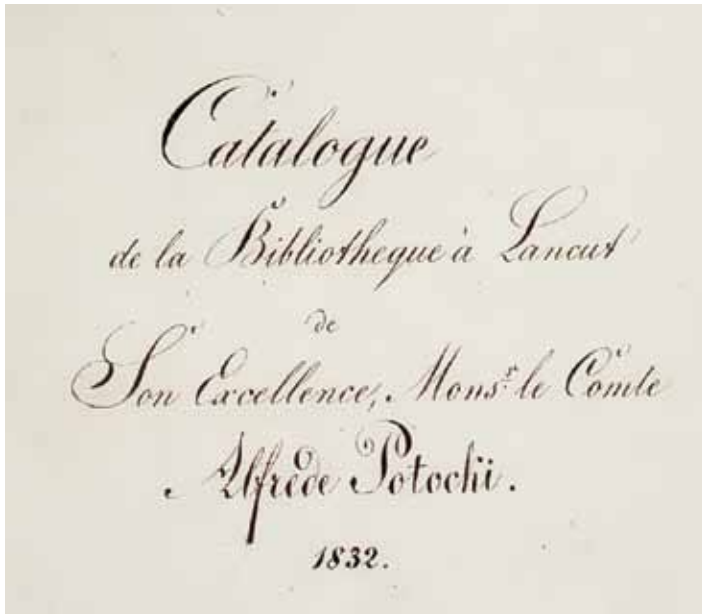 Catalogue
de la Bibliotheque à Lancut
de
Son Excellence, Mons.r le Comte
Alfrede Potocki.
1832.